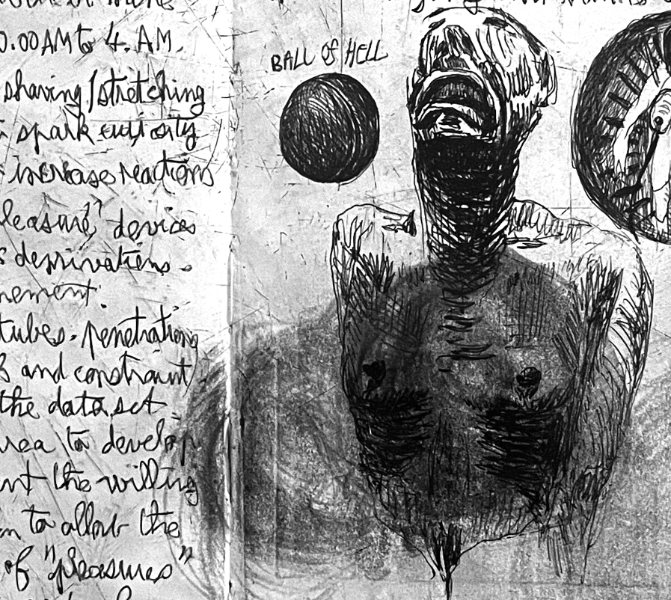 0.00 AM to 4. AM.
shaving/stretching
spark curiosity
increase reactions
leasure" devices
s deprivations.
nement.
tubes. penetrations
and constraint
the data set.
area to develop
nt the willing
n to allow the
of "pleasures"
BALL OF HELL